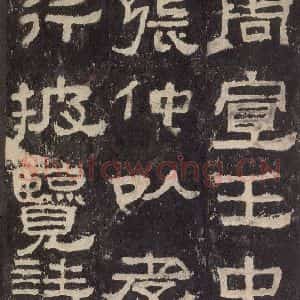 周宣王中
張仲以孝
行披覽詩
Shufawang.CN